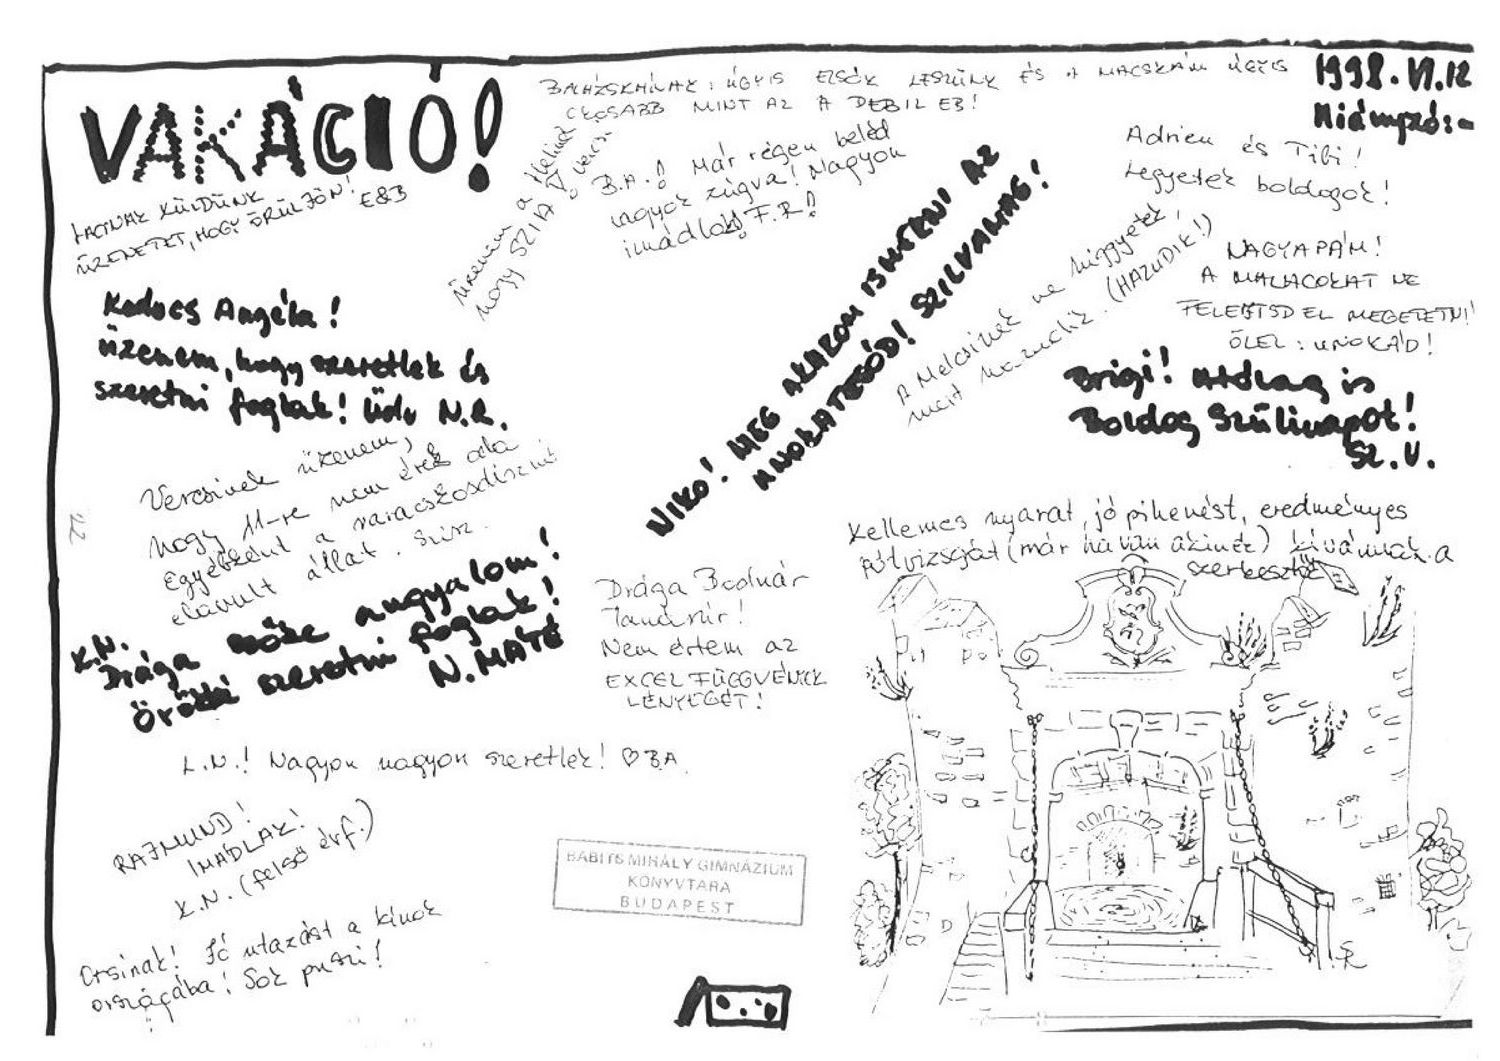 VAKÁCIÓ!
LACINAK KÜLDÜNK
ÜZENETET, HOGY ÖRÜLJÖN!
E&B
BALÁZSKÁNAK: ÚGYIS ELSŐK LESZÜNK ÉS A MACSKÁM ÚGYIS
OKOSABB MINT AZ A DEBIL EB!
1998.VI.12
Hiányzós:-
üzenem a
hogy SZIA
B.A.! Már régen beléd
vagyok zúgva! Nagyon
imádlak! F.R!
Adrien és Tibi!
Legyetek boldogok!
NAGYAPÁM!
A MALACOKAT NE
FELEJTSD EL MEGETETNI!
ÖLEL: UNOKÁD!
A ne higgyétek,
mert hazudik. (HAZUDIK!)
NIKO! MEG AKAROM ISMERNI AZ
UNOKATESÓD! SZILVAMAG!
Kedves Angéla!
üzenem, hogy szeretlek és
szeretni foglak! Üdv N.R.
Brigi! utólag is
Boldog Szülinapot!
SZ.V.
Vercsinek üzenem,
hogy 11-re nem érek oda
Egyébként a varacskosdisznó
elavult állat. Szisz.
K.N.
Drága angyalom!
Örökké szeretni foglak!
N.MÁTÉ
Kellemes nyarat, jó pihenést, eredményes
pótvizsgát (már ha van akinek) kívánnak a
szerkesztők
Drága Bodnár
Tanárúr!
Nem értem az
EXCEL FÜGGVÉNYEK
LÉNYEGÉT!
L.N.! Nagyon nagyon szeretlek! ♡ B.A.
RAJMUND!
IMÁDLAK!
K.N. (felső évf.)
Orsinak! Jó utazást a kínok
országába! Sok puszi!
BABITS MIHÁLY GIMNÁZIUM
KÖNYVTÁRA
BUDAPEST
22
SR